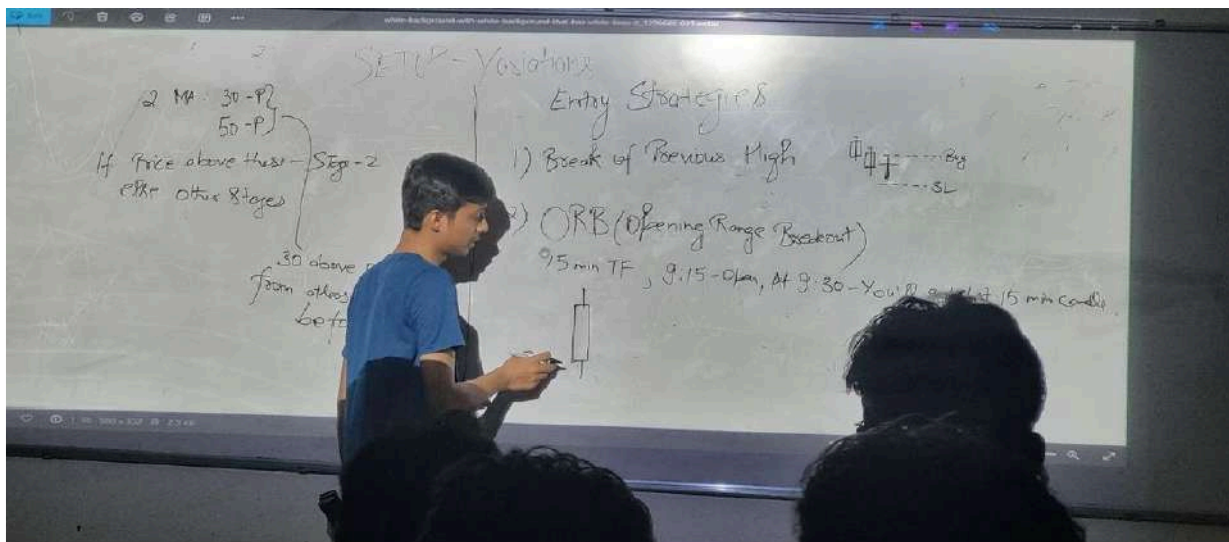 SETUP - Variations
2 MA: 30-P
50-P
If Price above these - Stage-2
else other stages
30 above
from others
Entry Strategies
1) Break of Previous High
Buy
SL
2) ORB (Opening Range Breakout)
15 min TF, 9:15-Open, At 9:30-You'll 15 min candle.